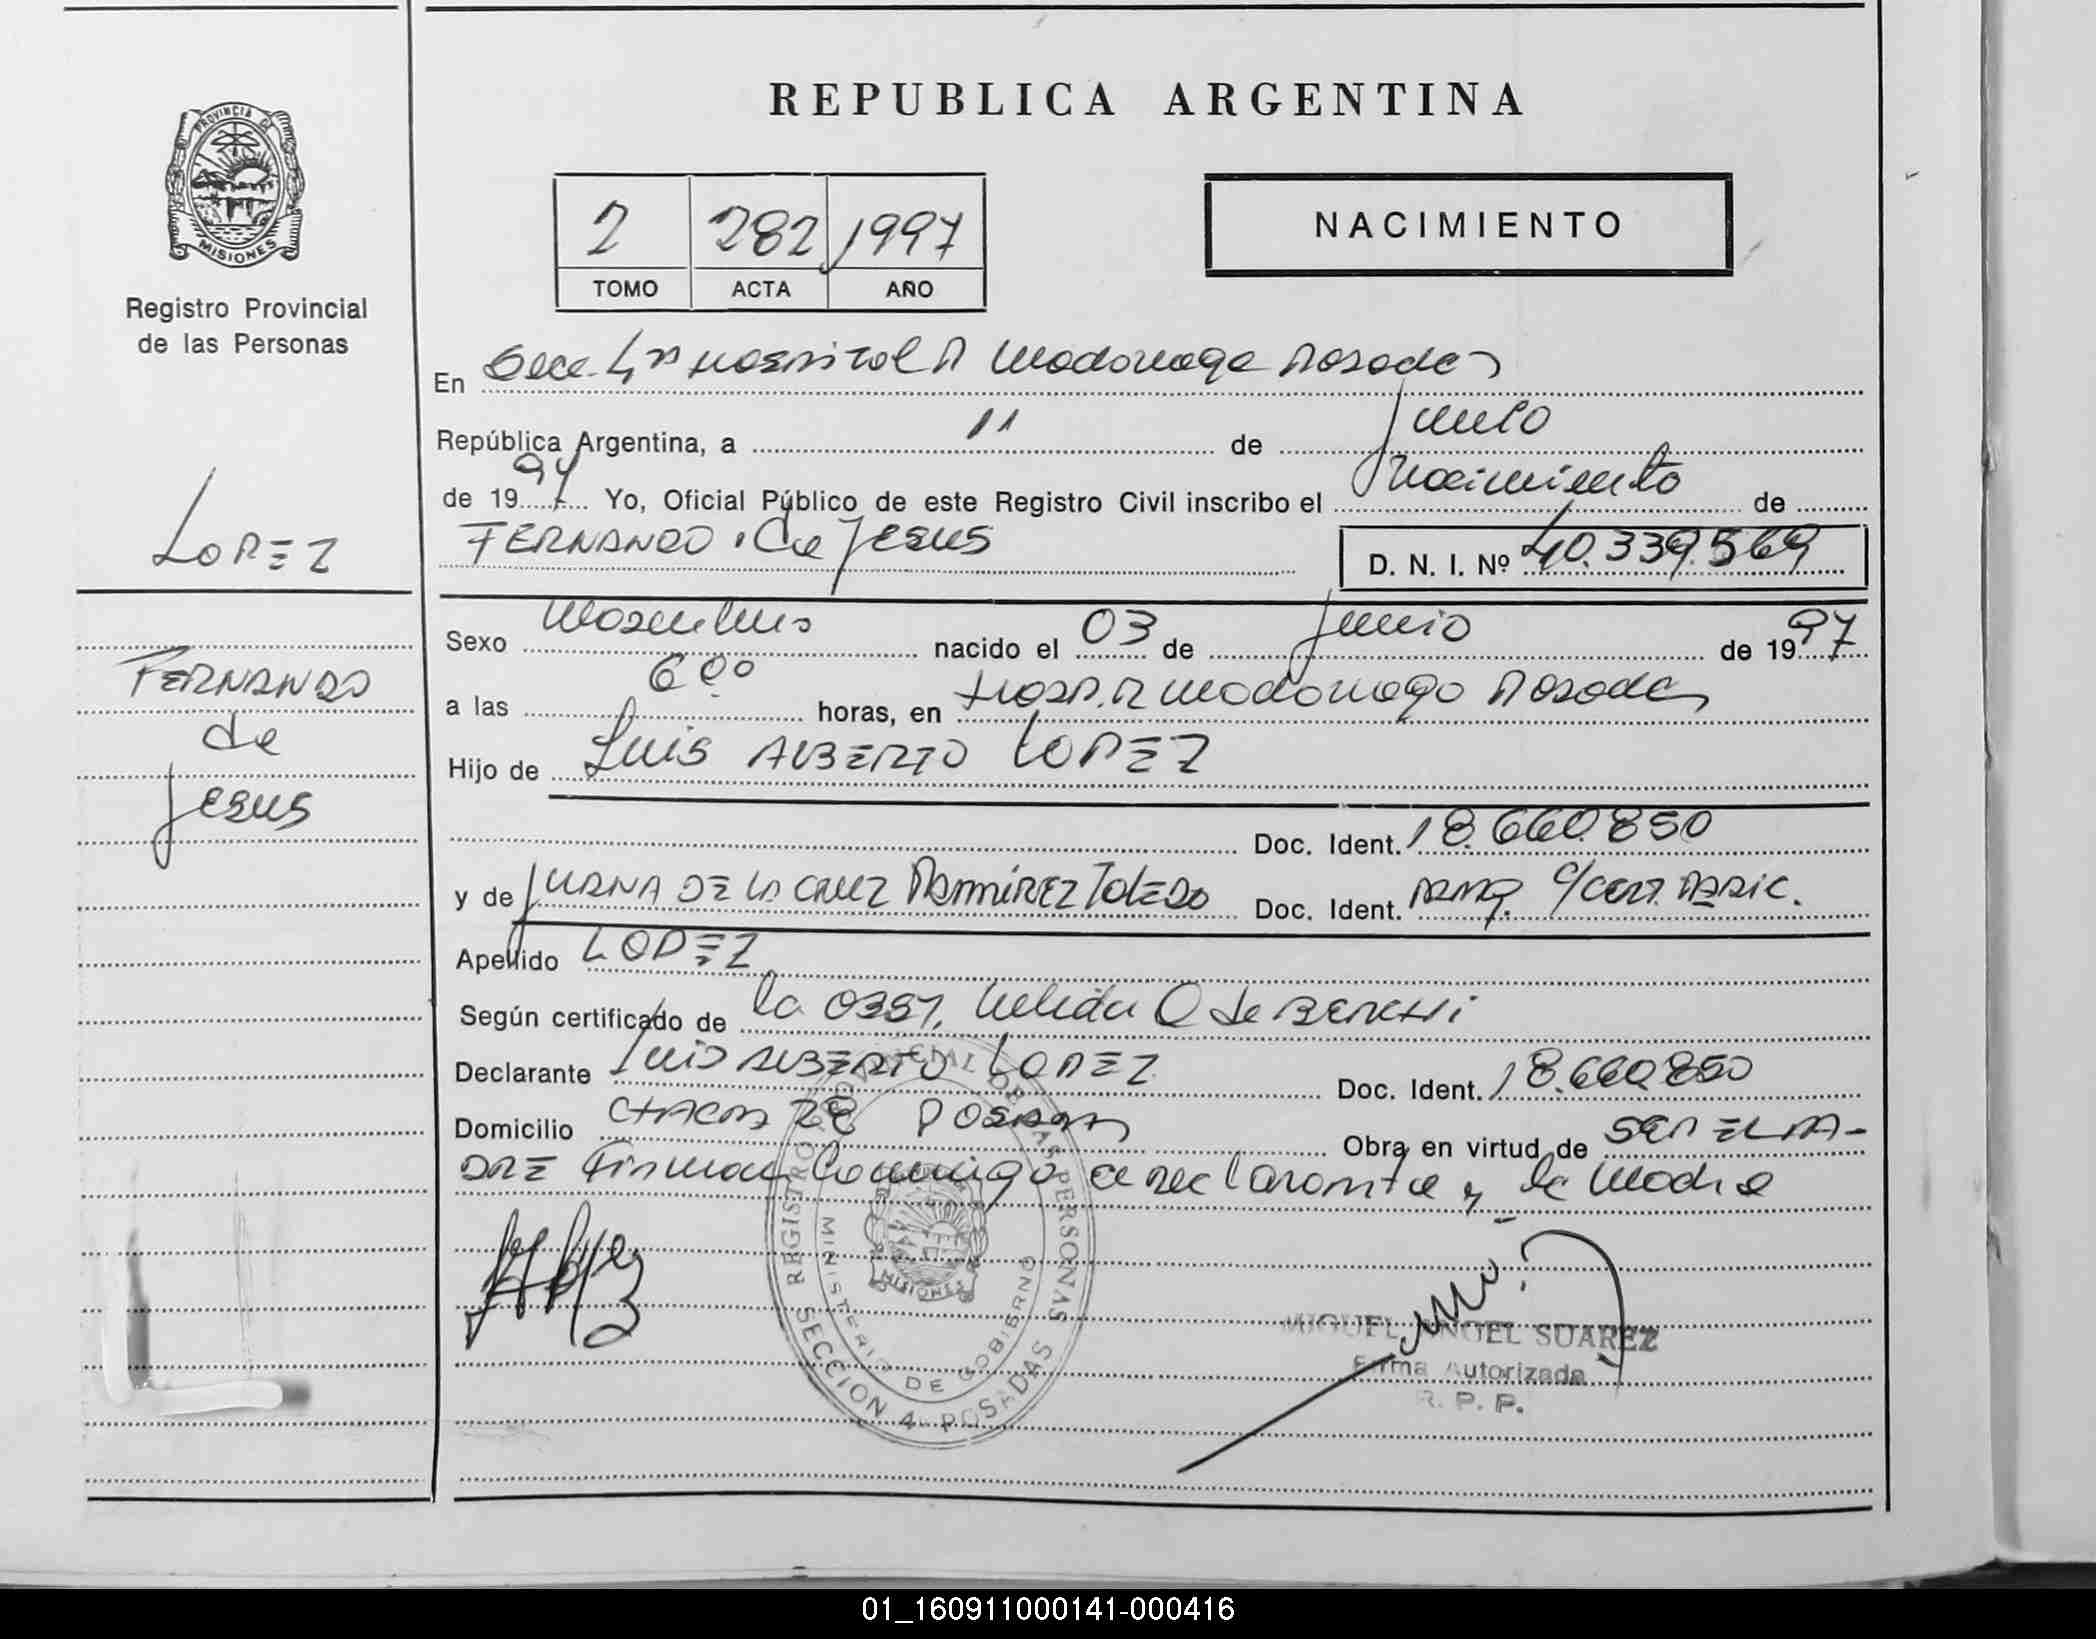 REPUBLICA ARGENTINA
PROVINCIA DE
MISIONES
Registro Provincial
de las Personas
2 282 1997
TOMO ACTA AÑO
NACIMIENTO
LOPEZ
FERNANDO
de
Jesus
En Secc. 4ta Hospital R Madariaga Posadas
República Argentina, a 11 de Junio
de 1997 Yo, Oficial Público de este Registro Civil inscribo el Nacimiento de
FERNANDO de Jesus D. N. I. Nº 40.339.569
Sexo Masculino nacido el 03 de Junio de 1997
a las 6 00 horas, en Hosp. R Madariaga Posadas
Hijo de Luis ALBERTO LOPEZ
Doc. Ident. 18.660.850
y de JUANA DE LA CRUZ RAMÍREZ TOLEDO Doc. Ident. PARAG. C/CERT. RADIC.
Apellido LOPEZ
Según certificado de la Obst. Nelida Q de
Declarante Luis ALBERTO LOPEZ Doc. Ident. 18.660.850
Domicilio CHACRA 28 POSADAS Obra en virtud de SER EL PA-
DRE Firman Conmigo el declarante y la Madre
REGISTRO PROVINCIAL DE LAS PERSONAS
MINISTERIO DE GOBIERNO
MISIONES
SECCION 4 POSADAS
MIGUEL ANGEL SUAREZ
Firma Autorizada
R. P. P.
01_160911000141-000416